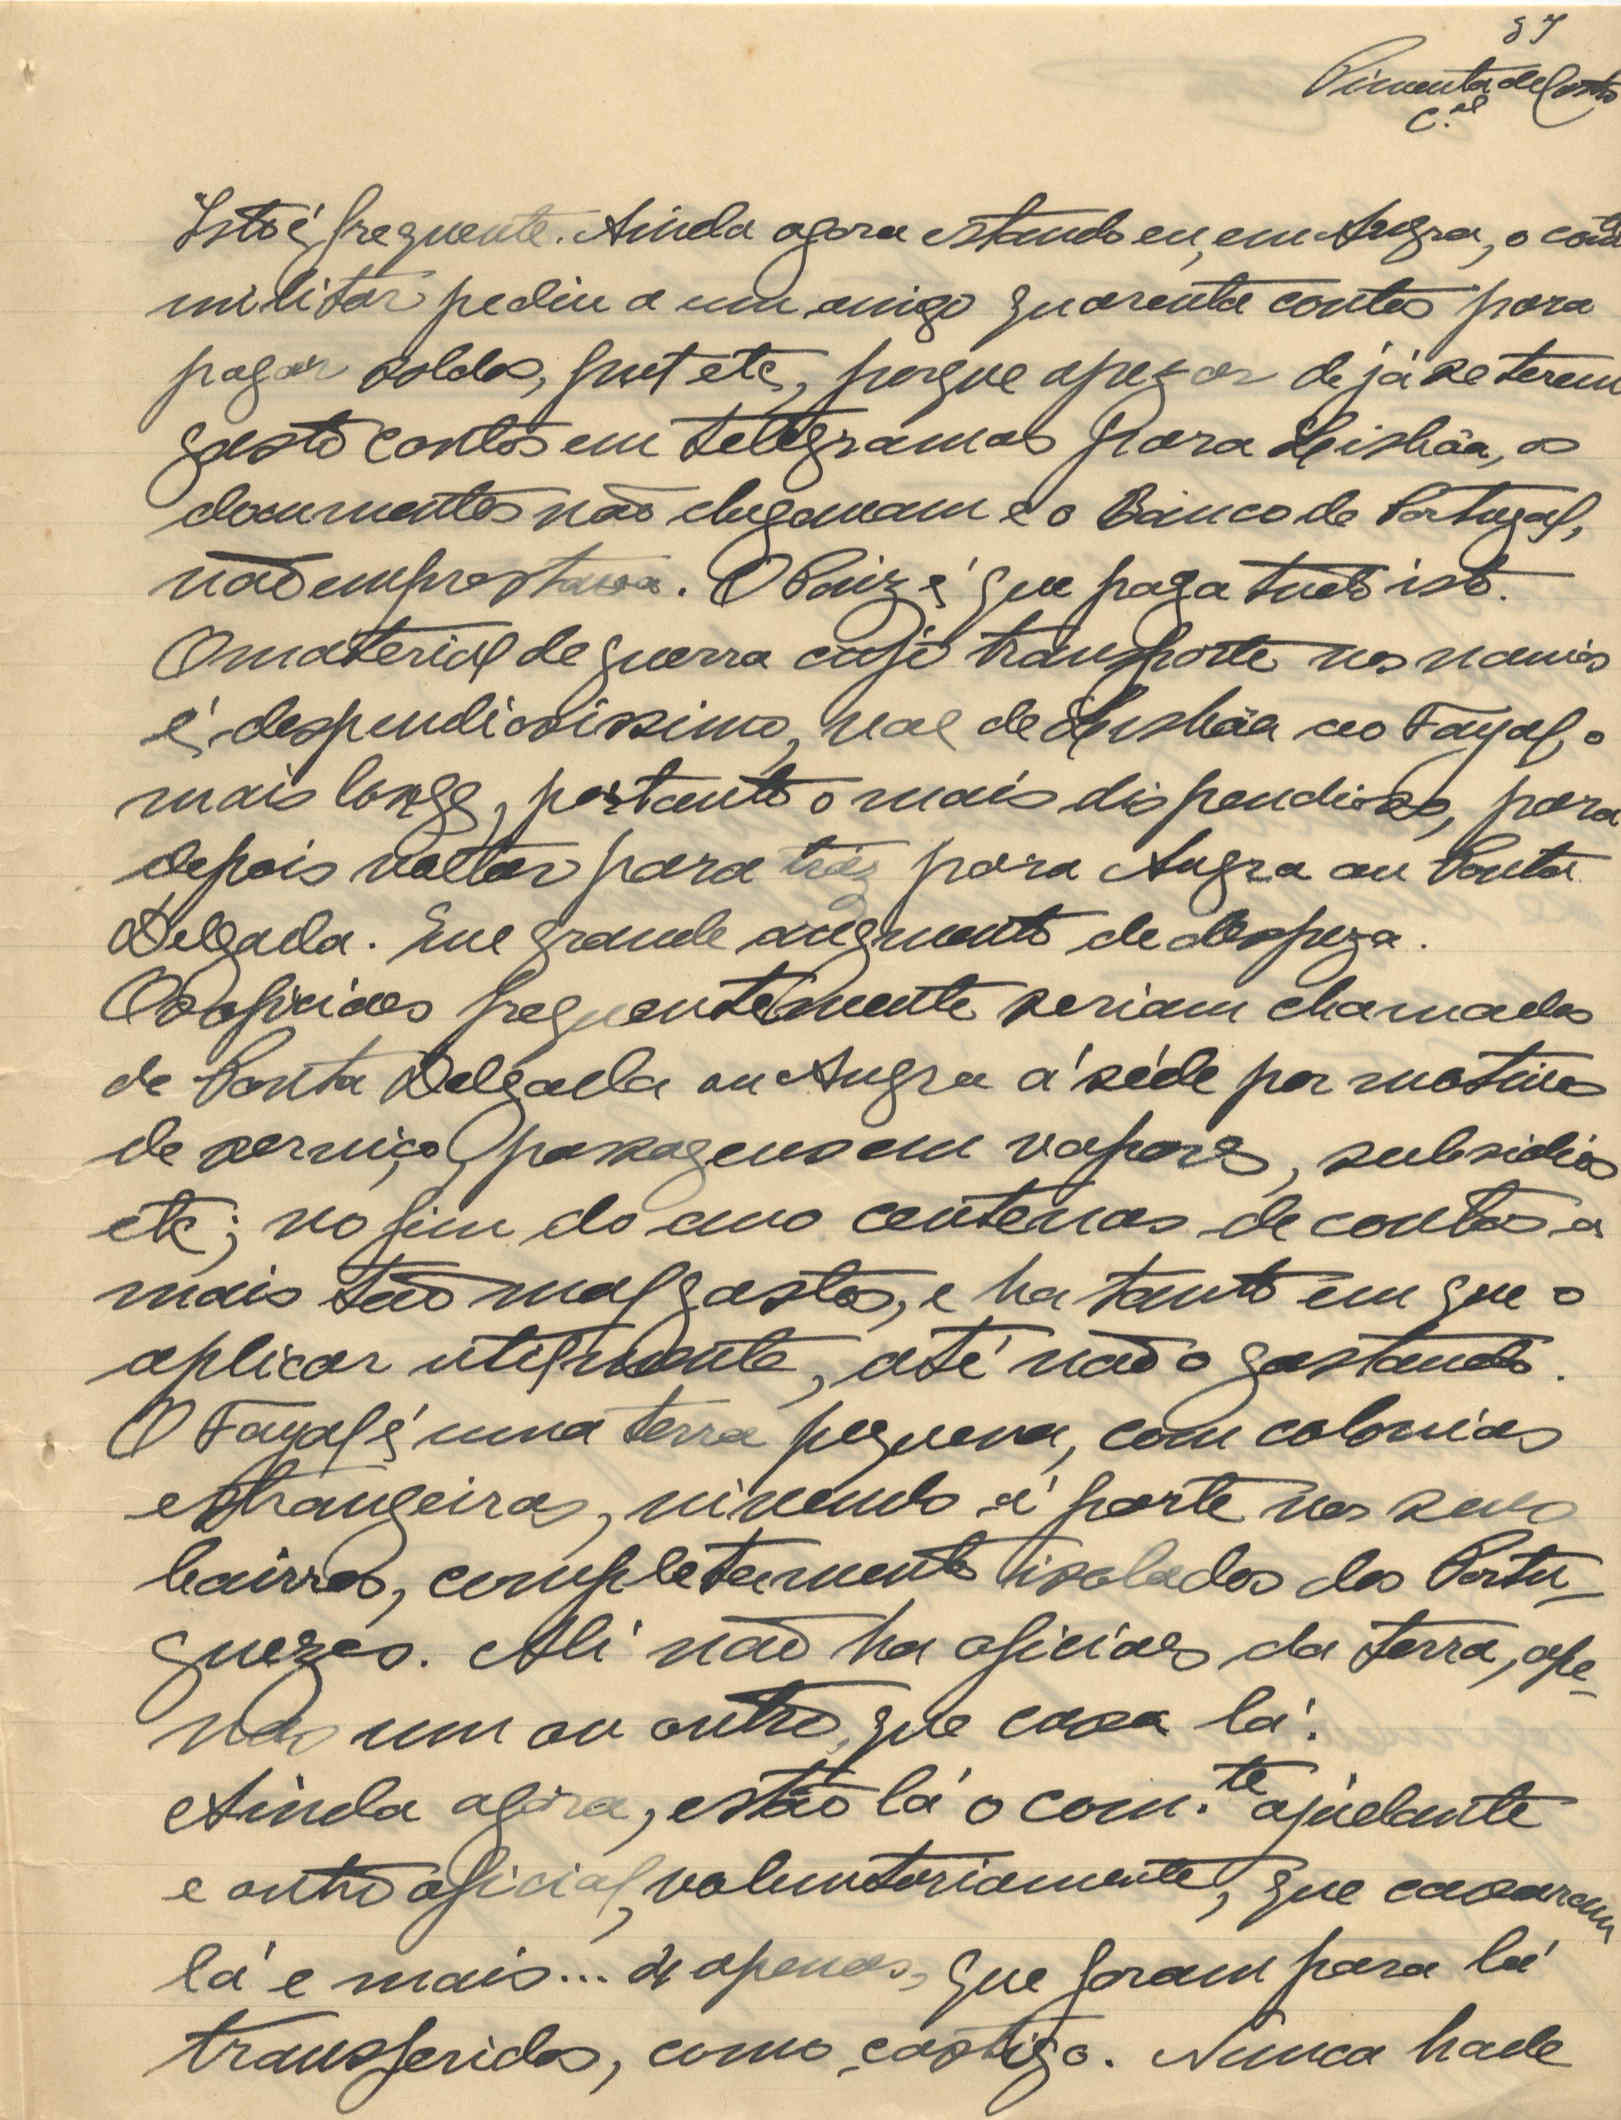 37
Pimenta de Castro
C.el
Isto é frequente. Ainda agora estando eu, em Angra, o com.te
militar pediu a um amigo quarenta contos para
pagar soldos, pret etc, porque apezar de já se terem
gasto contos em telegramas para Lisbôa, os
documentos não chegavam e o Banco de Portugal,
não emprestava. O Paiz é que paga tudo isto.
O material de guerra cujo transporte nos navios
é despendiosissimo, vae de Lisbôa ao Fayal, o
mais longe, portanto o mais dispendioso, para
depois voltar para tráz para Angra ou Ponta
Delgada. Que grande augmento de despeza.
Os oficiaes frequentemente seriam chamados
de Ponta Delgada ou Angra á séde por motivos
de serviço, passagens em vapores, subsidios
etc; no fim do ano centenas de contos a
mais tão mal gastos, e ha tanto em que o
aplicar utilmente, até não o gastando.
O Fayal é uma terra pequena, com colonias
estrangeiras, vivendo á parte nos seus
bairros, completamente isolados dos Portu-
guezes. Ali não ha oficiaes da terra, ape-
nas um ou outro, que casa lá.
Ainda agora, estão lá o com.te ajudante
e outro oficial, voluntariamente, que casaram
lá e mais... 4 apenas, que foram para lá
transferidos, como castigo. Nunca hade